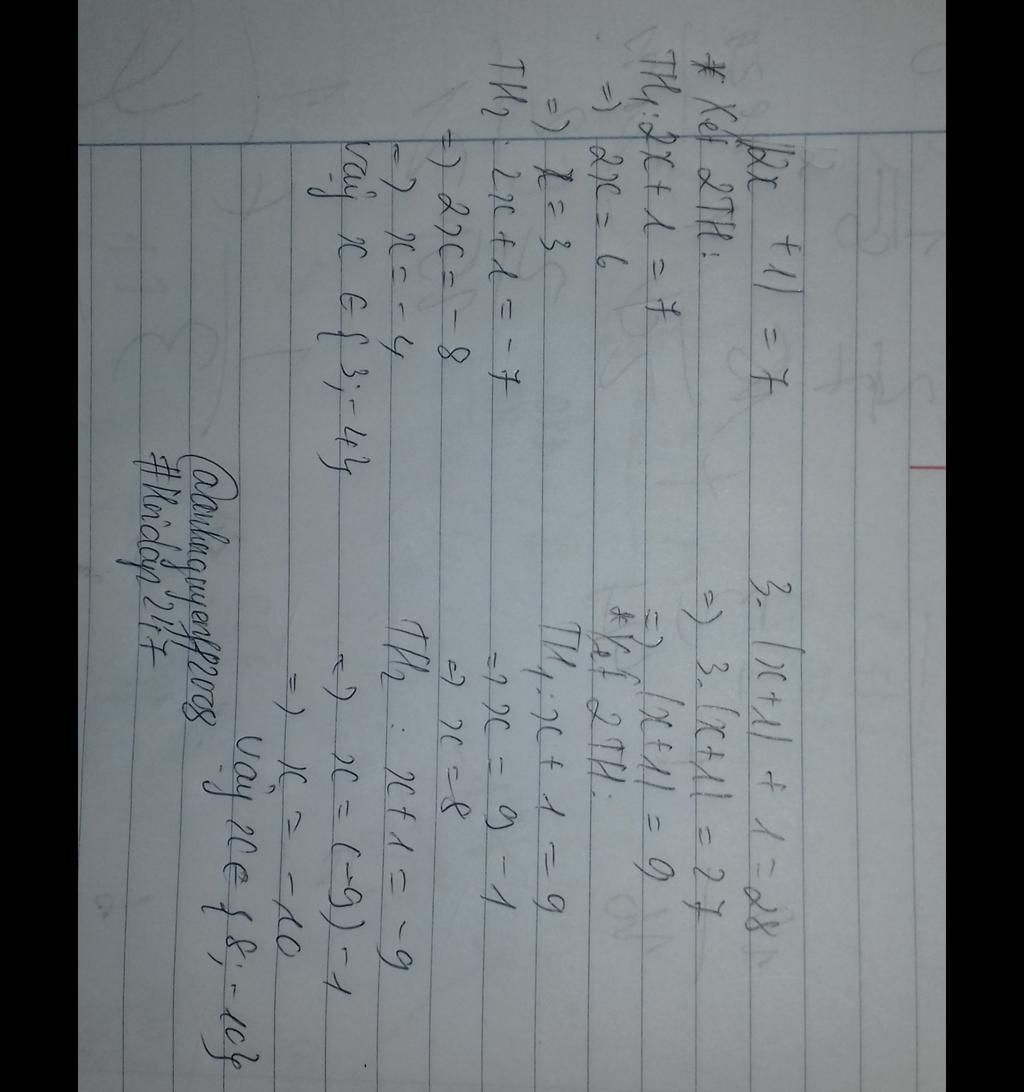 |2x + 1| = 7
* Xét 2TH:
TH1: 2x + 1 = 7
=) 2x = 6
=) x = 3
TH2: 2x + 1 = -7
=) 2x = -8
=) x = -4
Vậy x ∈ { 3; -4}
3. |x+1| + 1 = 28
=) 3. |x+1| = 27
=) |x+1| = 9
* Xét 2TH:
TH1: x + 1 = 9
=) x = 9 - 1
=) x = 8
TH2: x + 1 = -9
=) x = (-9) - 1
=) x = -10
Vậy x ∈ { 8; -10}
#Hoidap247